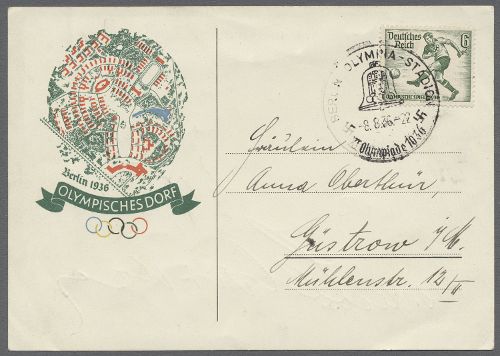 Berlin 1936
OLYMPISCHES DORF
Deutsches
Reich
6
BERLIN OLYMPIA-STADION
-8.8.36-22
XI Olympiade 1936
Fräulein
Anna Oberthür,
Güstrow i/M.
Mühlenstr. 12/II